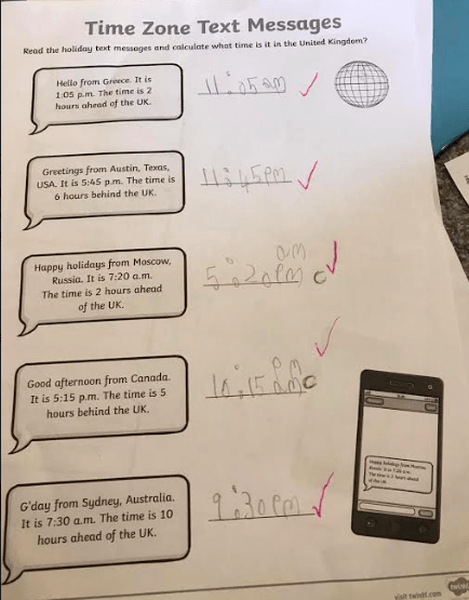 Time Zone Text Messages
Read the holiday text messages and calculate what time is it in the United Kingdom?
Hello from Greece. It is
1:05 p.m. The time is 2
hours ahead of the UK.
11:05am
Greetings from Austin, Texas,
USA. It is 5:45 p.m. The time is
6 hours behind the UK.
11:45pm
Happy holidays from Moscow,
Russia. It is 7:20 a.m.
The time is 2 hours ahead
of the UK.
am
5:20pm c
Good afternoon from Canada.
It is 5:15 p.m. The time is 5
hours behind the UK.
pm
10:15am c
G'day from Sydney, Australia.
It is 7:30 a.m. The time is 10
hours ahead of the UK.
9:30pm
Happy holidays from Moscow,
Russia. It is 7:20 a.m.
The time is 2 hours ahead
of the UK.
visit twinkl.com
twinkl